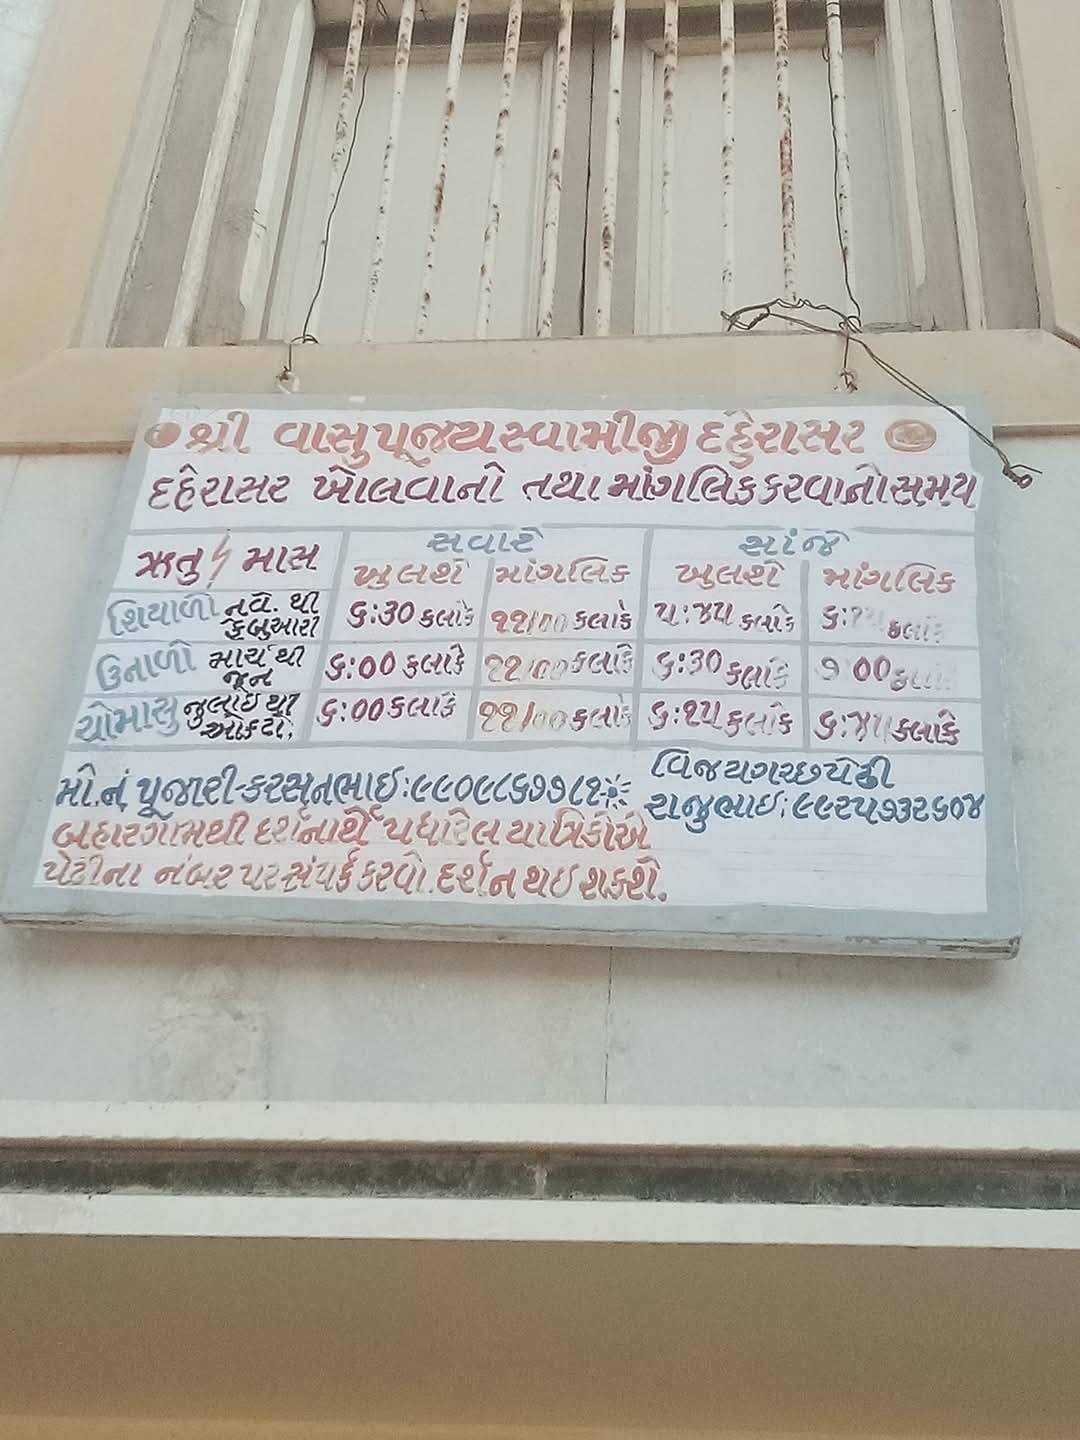 શ્રી વાસુપૂજ્યસ્વામીજી દહેરાસર
દહેરાસર ખોલવાનો તથા માંગલિક કરવાનો સમય
ઋતુ / માસ સવારે સાંજે
ખુલશે માંગલિક ખુલશે માંગલિક
શિયાળો નવે. થી ફેબ્રુઆરી ૬:30 કલાકે ૧૧/૦૦ કલાકે ૫:૪૫ કલાકે ૬: કલાકે
ઉનાળો માર્ચ થી જૂન ૬:00 કલાકે ૧૧/૦૦ કલાકે ૬:30 કલાકે ૭ 00 કલાકે
ચોમાસુ જુલાઈ થી ઓકટો. ૬:00 કલાકે ૧૧/૦૦ કલાકે ૬:૧૫ કલાકે ૬:૪૫ કલાકે
મો.નં પૂજારી-કરસનભાઈ:૯૯૦૯૮૬૭૭૮૧ વિજયગચ્છ પેઢી
રાજુભાઈ:૯૯૨૫૭૩૨૬૦૪
બહારગામથી દર્શનાર્થે પધારેલ યાત્રિકોએ
પેઢીના નંબર પર સંપર્ક કરવો. દર્શન થઈ શકશે.